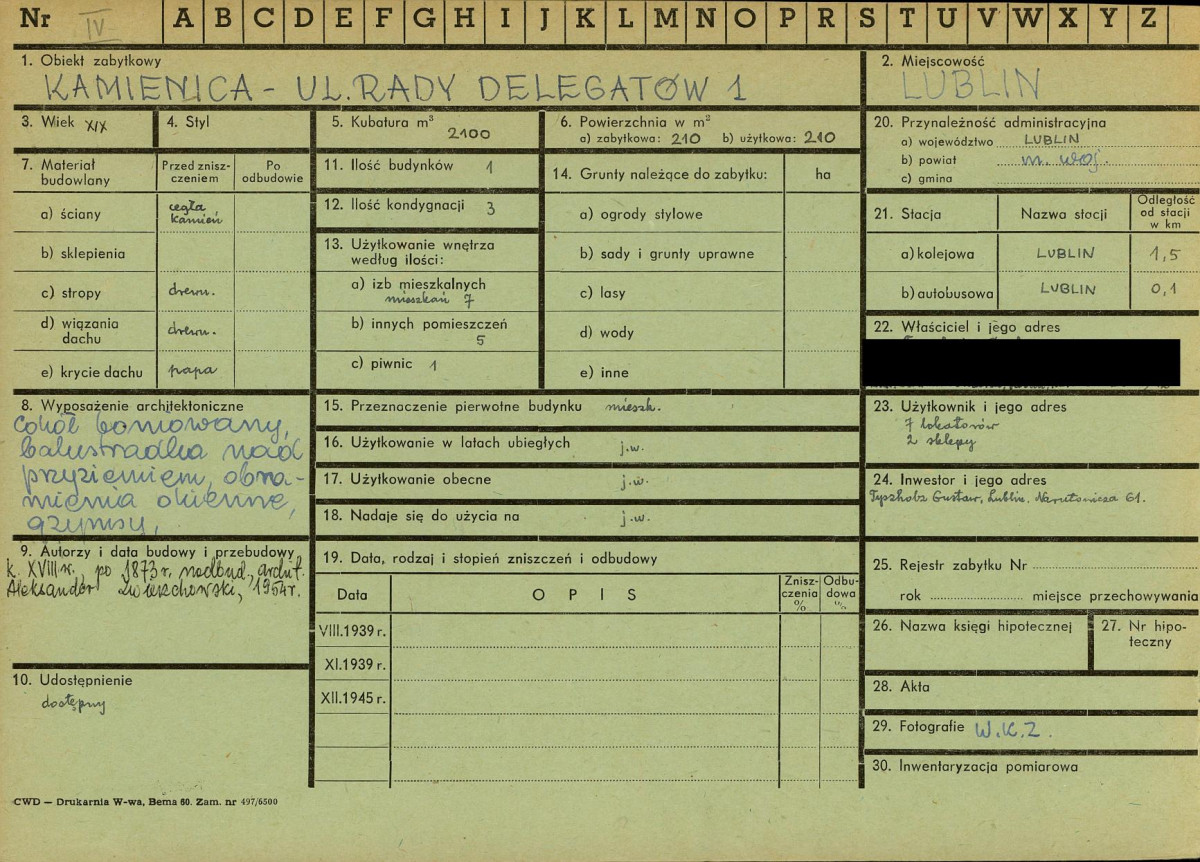 Nr IV A B C D E F G H I J K L M N O P R S T U V W X Y Z
1. Obiekt zabytkowy
KAMIENICA - UL. RADY DELEGATÓW 1
2. Miejscowość
LUBLIN
3. Wiek XIX
4. Styl
5. Kubatura m³ 2100
6. Powierzchnia w m²
a) zabytkowa: 210 b) użytkowa: 210
20. Przynależność administracyjna
a) województwo LUBLIN
b) powiat m. woj.
c) gmina
7. Materiał budowlany
Przed zniszczeniem
Po odbudowie
a) ściany cegła kamień
b) sklepienia
c) stropy drewn.
d) wiązania dachu drewn.
e) krycie dachu papa
11. Ilość budynków 1
12. Ilość kondygnacji 3
13. Użytkowanie wnętrza według ilości:
a) izb mieszkalnych
mieszkań 7
b) innych pomieszczeń
5
c) piwnic 1
14. Grunty należące do zabytku: ha
a) ogrody stylowe
b) sady i grunty uprawne
c) lasy
d) wody
e) inne
21. Stacja Nazwa stacji Odległość od stacji w km
a) kolejowa LUBLIN 1,5
b) autobusowa LUBLIN 0,1
22. Właściciel i jego adres
8. Wyposażenie architektoniczne
Cokół boniowany,
balustradka nad
przyziemiem, obra-
mienia okienne,
gzymsy,
15. Przeznaczenie pierwotne budynku mieszk.
16. Użytkowanie w latach ubiegłych j.w.
17. Użytkowanie obecne j.w.
18. Nadaje się do użycia na j.w.
23. Użytkownik i jego adres
7 lokatorów
2 sklepy
24. Inwestor i jego adres
Gustaw, Lublin, Narutowicza 61.
9. Autorzy i data budowy i przebudowy
k. XVIII w., po 1873 r. nadbud., archit.
Aleksander 1954 r.
19. Data, rodzaj i stopień zniszczeń i odbudowy
Data OPIS Zniszczenia % Odbudowa %
VIII.1939 r.
XI.1939 r.
XII.1945 r.
25. Rejestr zabytku Nr
rok miejsce przechowywania
26. Nazwa księgi hipotecznej
27. Nr hipoteczny
10. Udostępnienie
dostępny
28. Akta
29. Fotografie W.K.Z.
30. Inwentaryzacja pomiarowa
CWD — Drukarnia W-wa, Bema 60. Zam. nr 497/6500